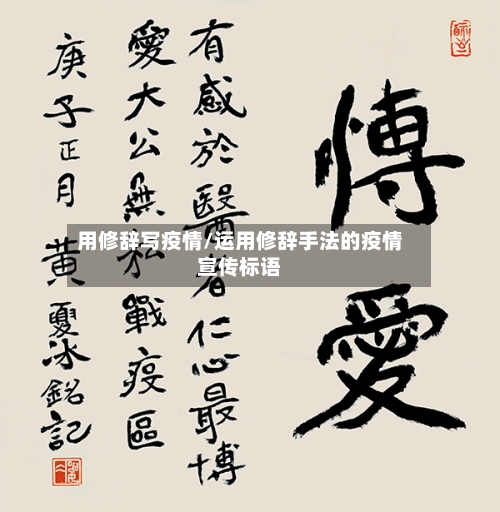 愽愛
有感於醫者仁心最博
愛大公無私戰疫區
庚子正月黄夏冰銘記
用修辞写疫情/运用修辞手法的疫情
宣传标语